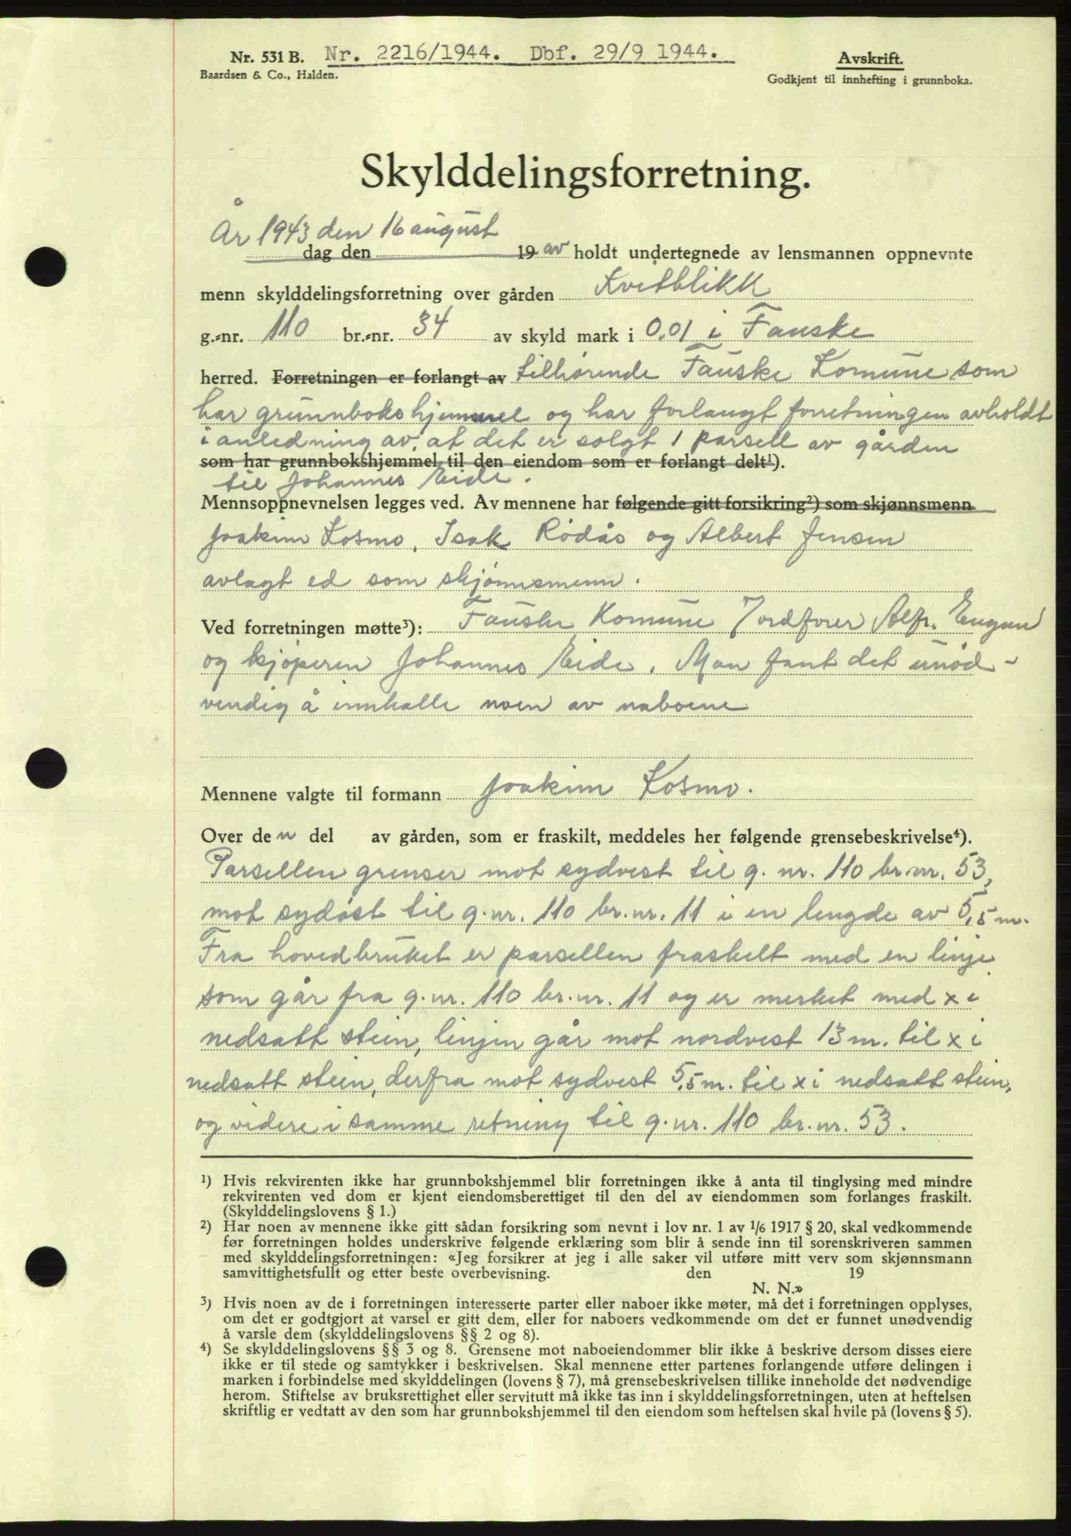 Nr. 531 B. Nr. 2216/1944. Dbf. 29/9 1944. Avskrift.
Baardsen & Co., Halden. Godkjent til innhefting i grunnboka.
Skylddelingsforretning.
År 1943 den 16 august
dag den 19 av holdt undertegnede av lensmannen oppnevnte
menn skylddelingsforretning over gården Kvitblikk
g.-nr. 110 br.-nr. 34 av skyld mark i 0,01 i Fauske
herred. Forretningen er forlangt av tilhørende Fauske Komune som
har grunnbokshjemmel og har forlangt forretningen avholdt
i anledning av, at det er solgt 1 parsell av gården
som har grunnbokshjemmel til den eiendom som er forlangt delt¹).
til Johannes Eide.
Mennsoppnevnelsen legges ved. Av mennene har følgende gitt forsikring²) som skjønnsmenn
Joakim Kosmo, Isak Rødås og Albert Jensen
avlagt ed som skjønnsmenn.
Ved forretningen møtte³): Fauske Komune v ordfører Alfr. Engan
og kjøperen Johannes Eide. Man fant det unød-
vendig å innkalle noen av naboene
Mennene valgte til formann Joakim Kosmo.
Over den del av gården, som er fraskilt, meddeles her følgende grensebeskrivelse⁴).
Parsellen grenser mot sydvest til g. nr. 110 br.nr. 53,
mot sydøst til g.nr. 110 br.nr. 11 i en lengde av 5,5 m.
Fra hovedbruket er parsellen fraskelt med en linje
som går fra g.nr. 110 br.nr. 11 og er merket med x i
nedsatt stein, linjen går mot nordvest 13 m. til x i
nedsatt stein, derfra mot sydvest 5,5 m. til x i nedsatt stein,
og videre i samme retning til g.nr. 110 br.nr. 53.
¹) Hvis rekvirenten ikke har grunnbokshjemmel blir forretningen ikke å anta til tinglysing med mindre
rekvirenten ved dom er kjent eiendomsberettiget til den del av eiendommen som forlanges fraskilt.
(Skylddelingslovens § 1.)
²) Har noen av mennene ikke gitt sådan forsikring som nevnt i lov nr. 1 av 1/6 1917 § 20, skal vedkommende
før forretningen holdes underskrive følgende erklæring som blir å sende inn til sorenskriveren sammen
med skylddelingsforretningen: «Jeg forsikrer at jeg i alle saker vil utføre mitt verv som skjønnsmann
samvittighetsfullt og etter beste overbevisning. den 19
N. N.»
³) Hvis noen av de i forretningen interesserte parter eller naboer ikke møter, må det i forretningen opplyses,
om det er godtgjort at varsel er gitt dem, eller for naboers vedkommende om det er funnet unødvendig
å varsle dem (skylddelingslovens §§ 2 og 8).
⁴) Se skylddelingslovens §§ 3 og 8. Grensene mot naboeiendommer blir ikke å beskrive dersom disses eiere
ikke er til stede og samtykker i beskrivelsen. Skal mennene etter partenes forlangende utføre delingen i
marken i forbindelse med skylddelingen (lovens § 7), må grensebeskrivelsen tillike inneholde det nødvendige
herom. Stiftelse av bruksrettighet eller servitutt må ikke tas inn i skylddelingsforretningen, uten at heftelsen
skriftlig er vedtatt av den som har grunnbokshjemmel til den eiendom som heftelsen skal hvile på (lovens § 5).